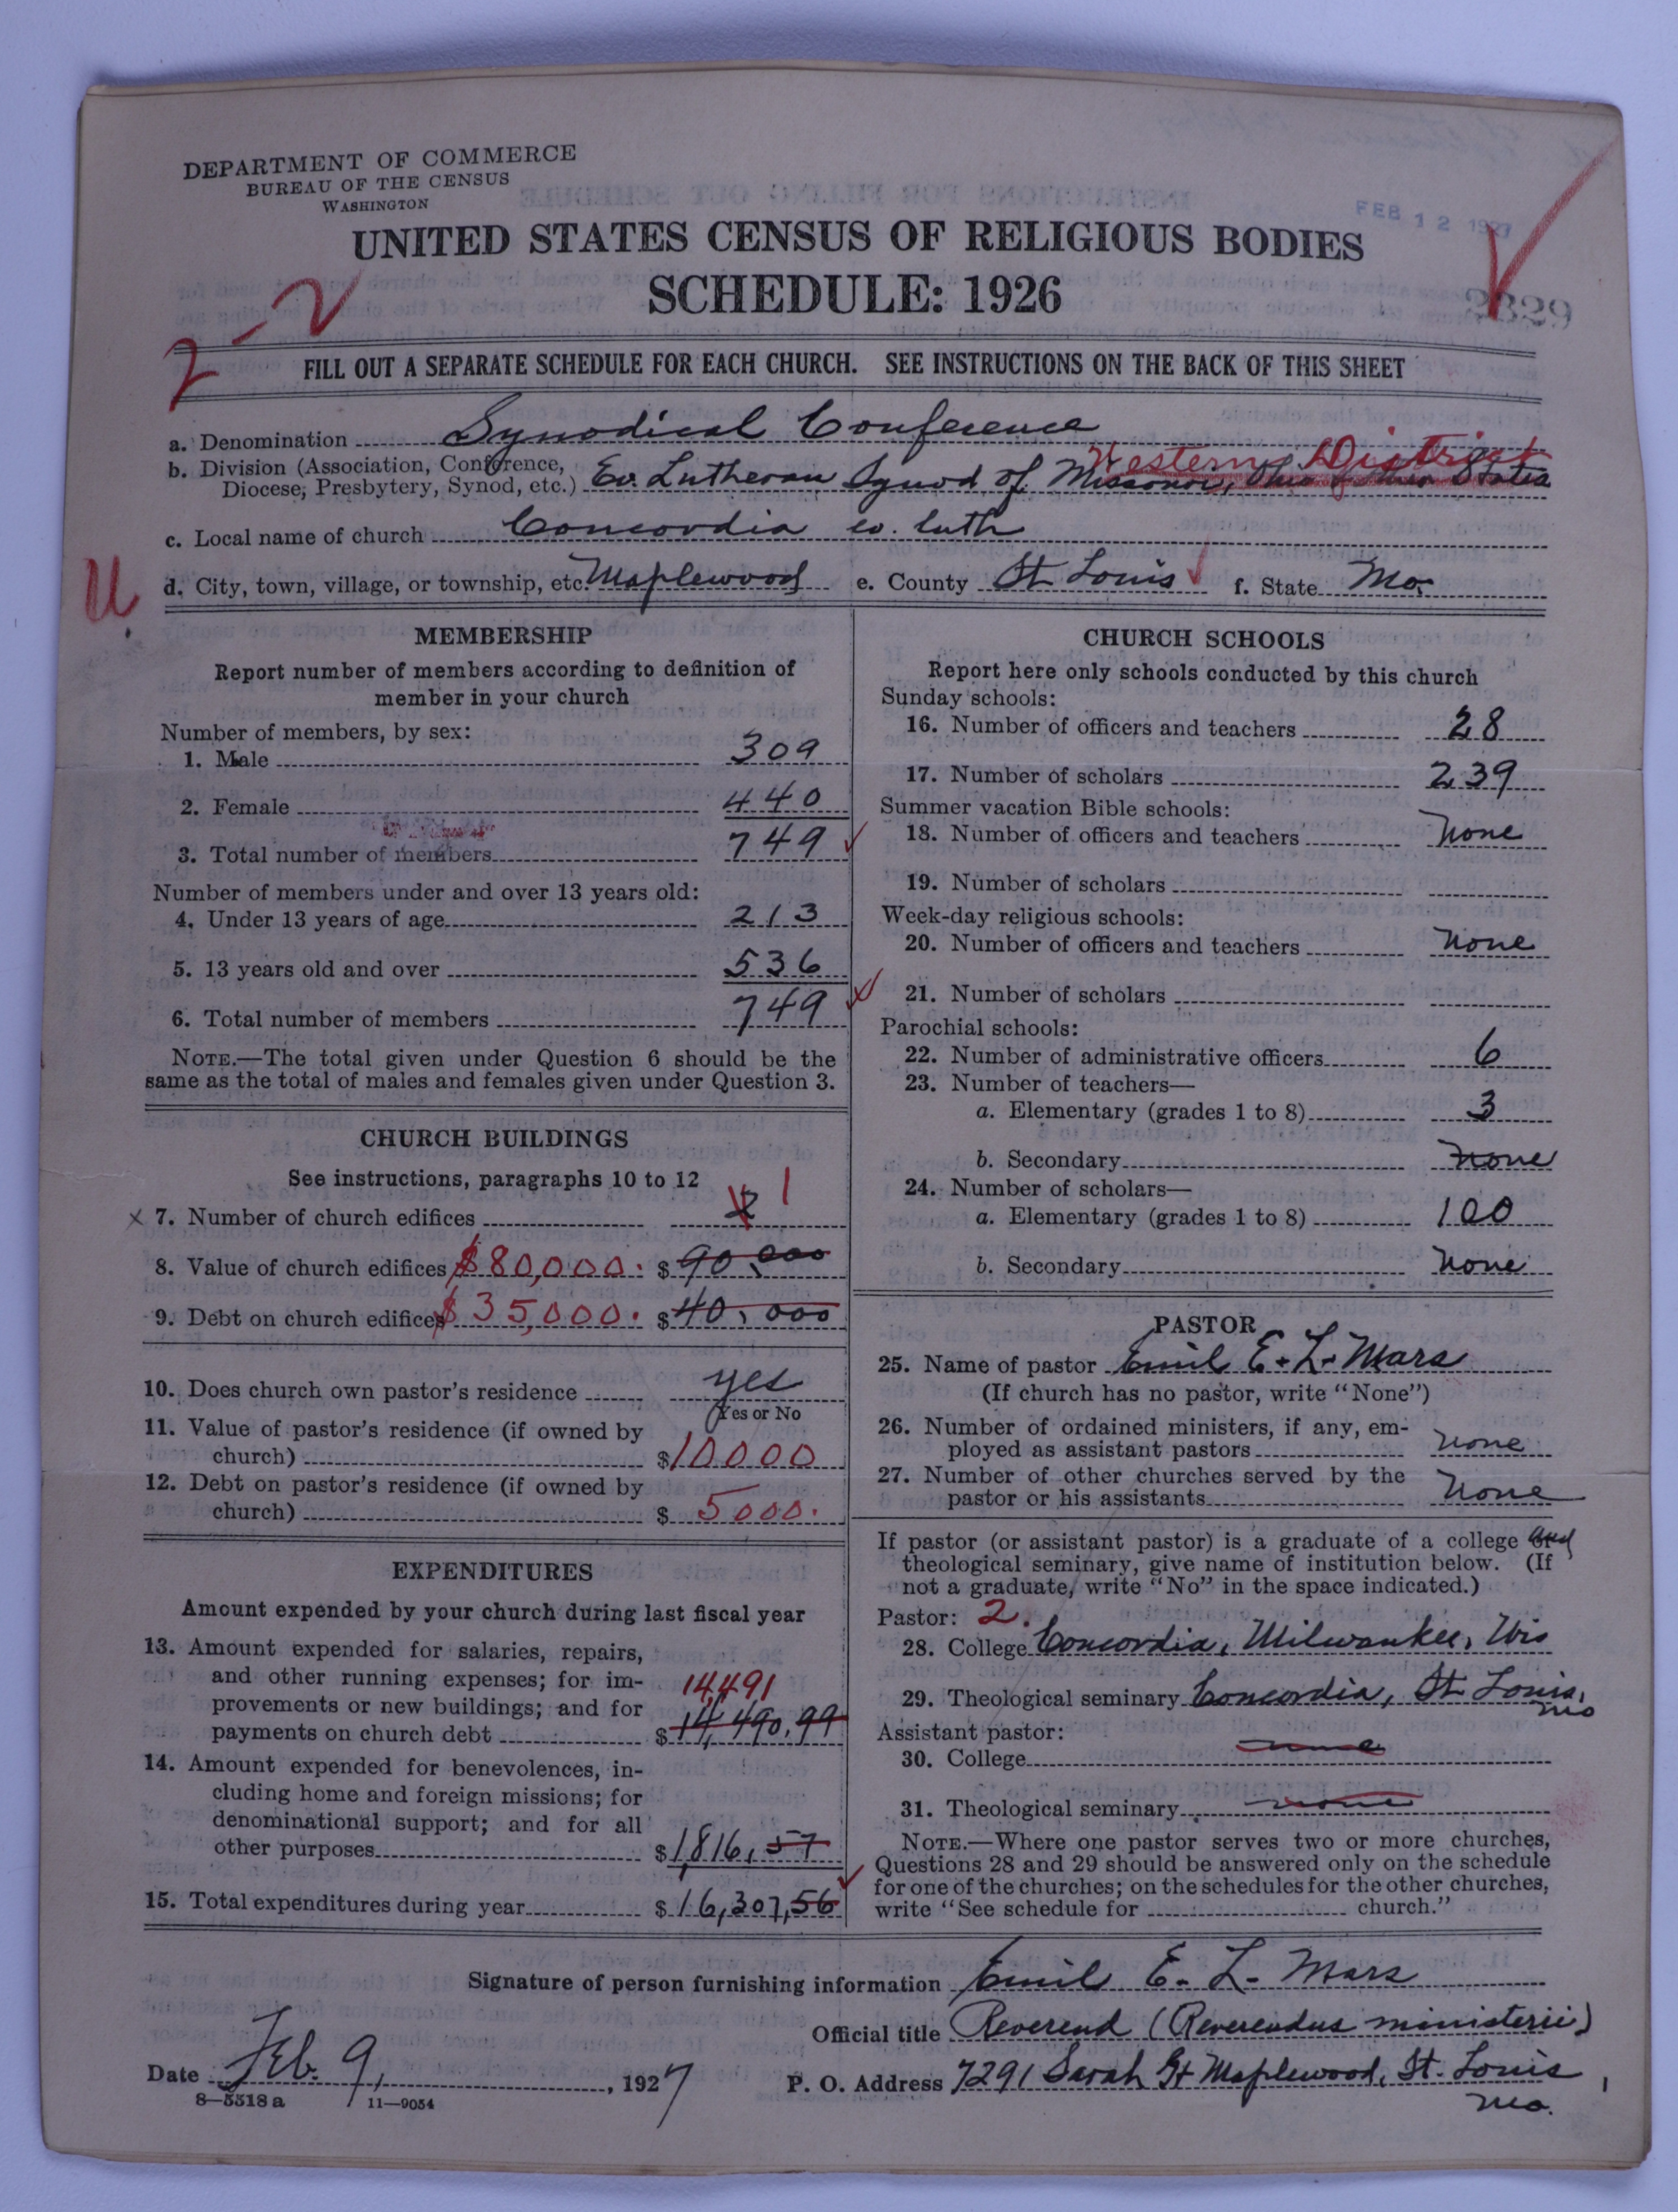 DEPARTMENT OF COMMERCE
BUREAU OF THE CENSUS
WASHINGTON
FEB 12 1927
UNITED STATES CENSUS OF RELIGIOUS BODIES
SCHEDULE: 1926
2829
2-2
FILL OUT A SEPARATE SCHEDULE FOR EACH CHURCH. SEE INSTRUCTIONS ON THE BACK OF THIS SHEET
a. Denomination Synodical Conference
Western District
b. Division (Association, Conference,
Diocese, Presbytery, Synod, etc.) Ev. Lutheran Synod of Missouri, Ohio & other States
c. Local name of church Concordia ev. luth
U.
d. City, town, village, or township, etc. Maplewood e. County St Louis f. State Mo.
MEMBERSHIP
Report number of members according to definition of
member in your church
Number of members, by sex:
1. Male 309
2. Female 440
3. Total number of members 749
Number of members under and over 13 years old:
4. Under 13 years of age 213
5. 13 years old and over 536
6. Total number of members 749
NOTE.—The total given under Question 6 should be the
same as the total of males and females given under Question 3.
CHURCH BUILDINGS
See instructions, paragraphs 10 to 12
x 7. Number of church edifices 2 1
8. Value of church edifices $80,000. $90,000
9. Debt on church edifices $35,000. $40,000
10. Does church own pastor's residence yes
Yes or No
11. Value of pastor's residence (if owned by
church) $10000
12. Debt on pastor's residence (if owned by
church) $5000.
EXPENDITURES
Amount expended by your church during last fiscal year
13. Amount expended for salaries, repairs,
and other running expenses; for im-
provements or new buildings; and for 14,491
payments on church debt $14,490.99
14. Amount expended for benevolences, in-
cluding home and foreign missions; for
denominational support; and for all
other purposes $1,816,57
15. Total expenditures during year $16,307,56
CHURCH SCHOOLS
Report here only schools conducted by this church
Sunday schools:
16. Number of officers and teachers 28
17. Number of scholars 239
Summer vacation Bible schools:
18. Number of officers and teachers None
19. Number of scholars
Week-day religious schools:
20. Number of officers and teachers None
21. Number of scholars
Parochial schools:
22. Number of administrative officers 6
23. Number of teachers—
a. Elementary (grades 1 to 8) 3
b. Secondary None
24. Number of scholars—
a. Elementary (grades 1 to 8) 100
b. Secondary None
PASTOR
25. Name of pastor Emil E. L. Mars
(If church has no pastor, write "None")
26. Number of ordained ministers, if any, em-
ployed as assistant pastors None
27. Number of other churches served by the
pastor or his assistants None
If pastor (or assistant pastor) is a graduate of a college and
theological seminary, give name of institution below. (If
not a graduate, write "No" in the space indicated.)
Pastor: 2.
28. College Concordia, Milwaukee, Wis
29. Theological seminary Concordia, St Louis,
Mo
Assistant pastor:
30. College none
31. Theological seminary none
NOTE.—Where one pastor serves two or more churches,
Questions 28 and 29 should be answered only on the schedule
for one of the churches; on the schedules for the other churches,
write "See schedule for church."
Signature of person furnishing information Emil E. L. Mars
Official title Reverend (Reverendus ministerii)
Date Feb. 9, 1927 P. O. Address 7291 Sarah St Maplewood, St. Louis,
Mo.
8—5518 a 11—9054